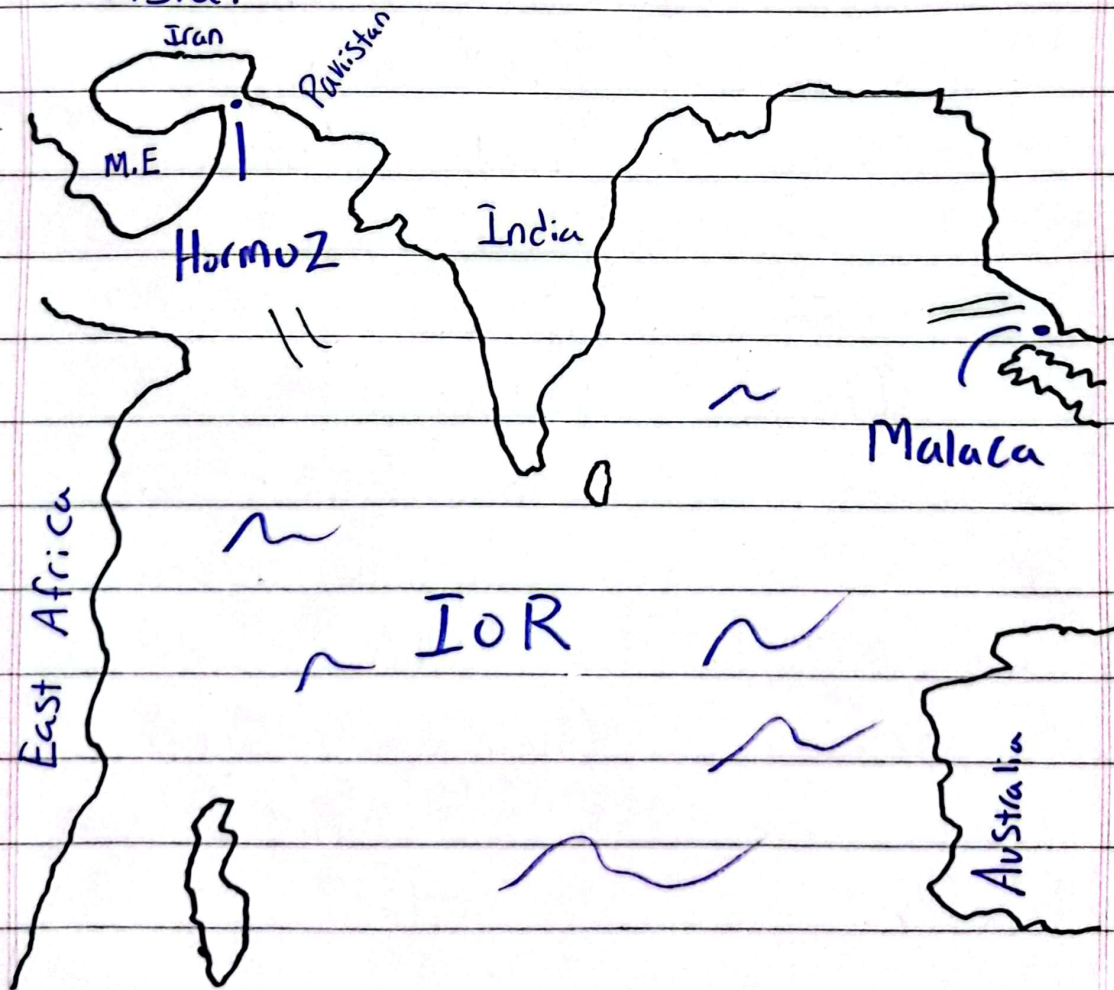 Iran
Pakistan
M.E
India
Hormuz
Malaca
East Africa
IOR
Australia